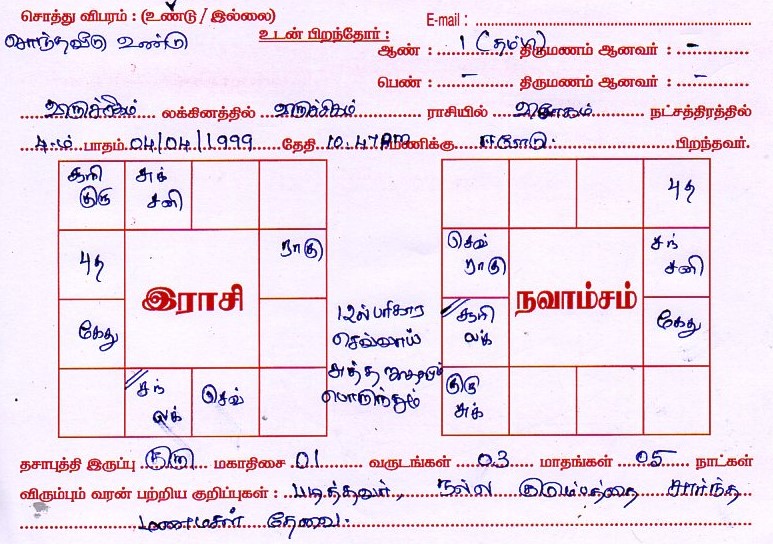 சொத்து விபரம் : (உண்டு / இல்லை)
சொந்தவீடு உண்டு
E-mail :
உடன் பிறந்தோர் :
ஆண் : 1 (தம்பி) திருமணம் ஆனவர் : -
பெண் : - திருமணம் ஆனவர் : -
விருச்சிகம் லக்கினத்தில் விருச்சிகம் ராசியில் நட்சத்திரத்தில்
4-ம் பாதம் 04/04/1999 தேதி 10.47PM மணிக்கு ஈரோடு. பிறந்தவர்.
சூரி குரு
சுக் சனி
புத
ராகு
கேது
சந் லக்
செவ்
இராசி
12ல் பரிகார
செவ்வாய்
பொருந்தும்
புத
செவ் ராகு
சந் சனி
சூரி லக்
கேது
குரு சுக்
நவாம்சம்
தசாபுத்தி இருப்பு மகாதிசை 01 வருடங்கள் 03 மாதங்கள் 05 நாட்கள்
விரும்பும் வரன் பற்றிய குறிப்புகள் : படித்தவர், நல்ல குடும்பத்தை சார்ந்த
மணமகன் தேவை.